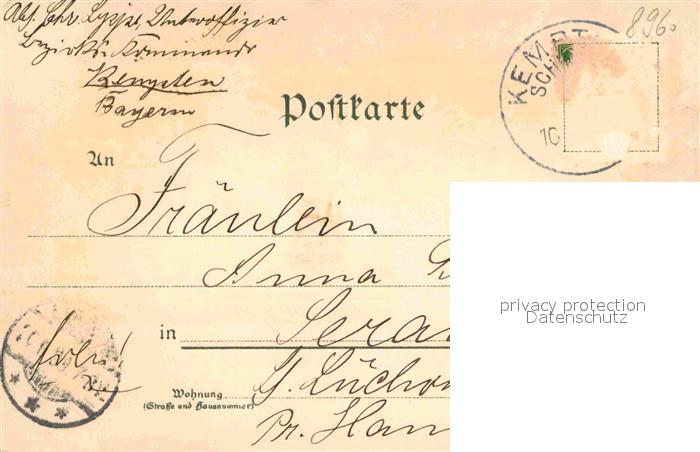 Unteroffizier
Bezirks-Kommando
Kempten
Bayern
896
KEMPT
SCH
10
Postkarte
An
Fräulein
Anna
in
Wohnung
(Straße und Hausnummer)
Lüchow
Pr. Han
privacy protection
Datenschutz